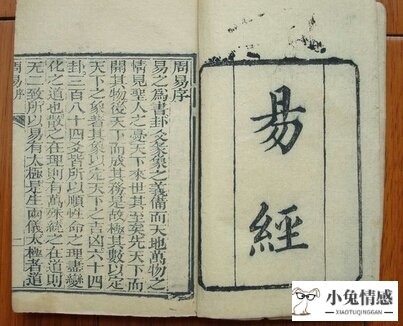 易經
周易序
易之為書卦爻彖象之義備而天地萬物之
情見聖人之憂天下來世其至矣先天下而
開其物後天下而成其務是故極其數以定
天下之象著其象以定天下之吉凶六十四
卦三百八十四爻皆所以順性命之理盡變
化之道也散之在理則有萬殊統之在道則
无二致所以易有太極是生兩儀太極者道
周易序
小兔情感
WWW.XIAOTUQINGGAN.COM